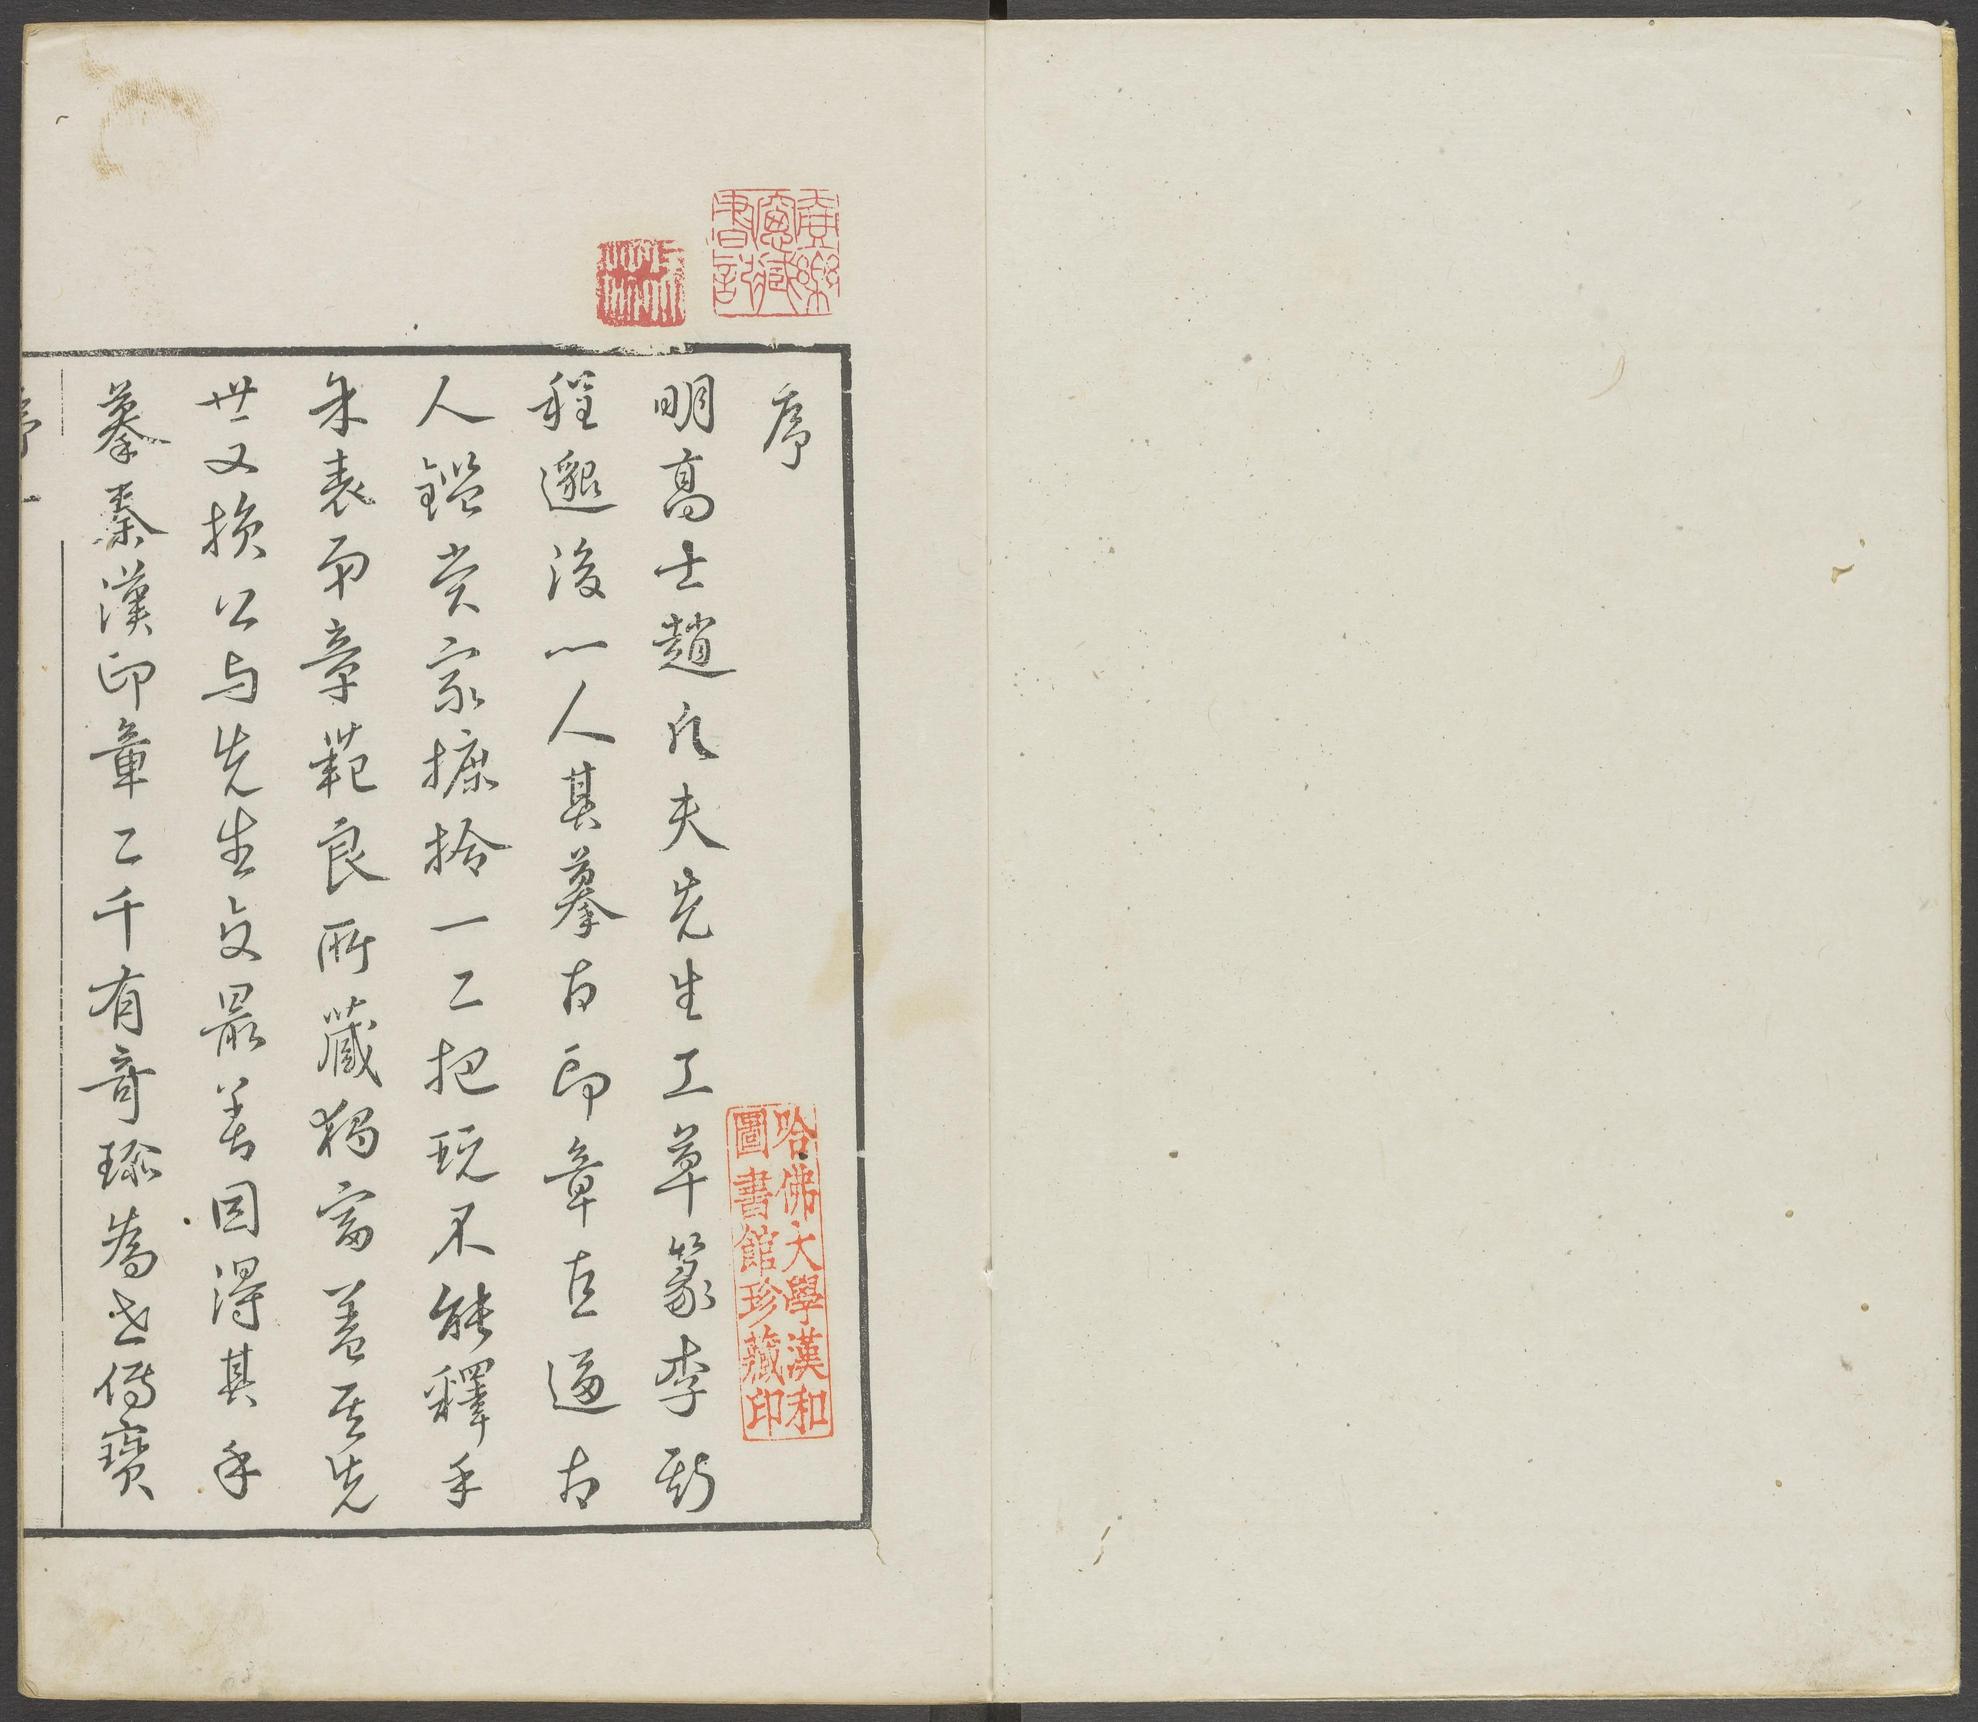 序
明高士趙凡夫先生工草篆李斯
程邈後一人其摹古印章直逼古
人鑑賞家摭拾一二把玩不能釋手
朱表弟章範良所藏獨富蓋其先
世又損公与先生交最善因得其手
摹秦漢印章二千有奇珎為世傳寶
哈佛大學漢和
圖書館珍藏印